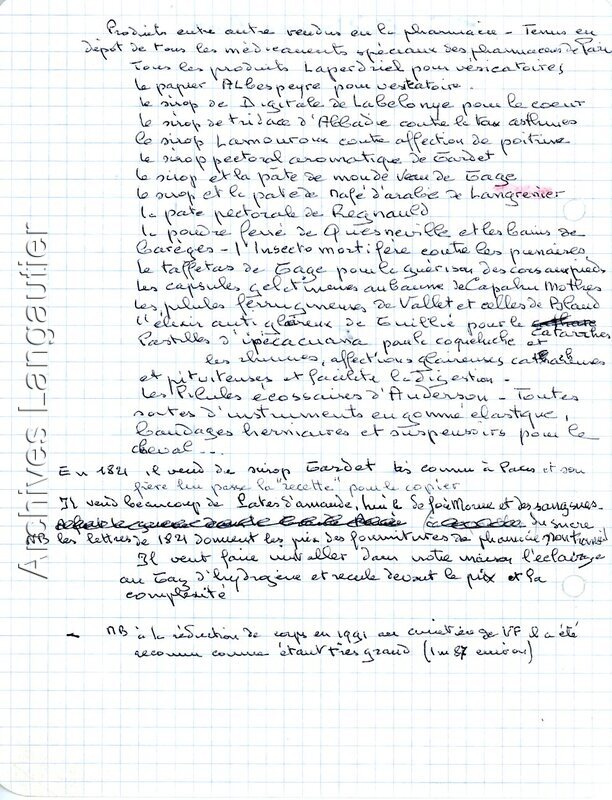 Produits entre autre vendus en la pharmacie - Tenus en
dépot de tous les médicaments spéciaux des pharmaciens de Paris
Tous les produits Laperdriel pour vésicatoires
le papier Albespeyre pour vesicatoire.
le sirop de Digitale de Labelonye pour le coeur
le sirop de tridace d'Abbadie contre la toux asthmes
le sirop Lamouroux contre affection de poitrine
le sirop pectoral aromatique de Tardet
le sirop et la pâte de mou de veau de Gage
le sirop et la pate de Nafé d'arabie de Langrenier
la pate pectorale de Regnauld
la poudre ferré de Quesneville et les bains de
Barèges - l'Insecto mortifère contre les punaises
Le taffetas de Gage pour la guérison des cors aux pieds
Les capsules gelatineuses au baume de Capahu Mothes
Les pilules ferrugineuses de Vallet et celles de Blaud
l'élixir anti glaireux de Guillié pour le catarrhes
Pastilles d'ipécacuana pour la coqueluche et
les rhumes, affections glaireuses
et pituiteuses et facilite la digestion -
Les Pilules ecossaires d'Anderson - Toutes
sortes d'instruments en gomme elastique,
bandages herniaires et suspensoirs pour le
cheval...
En 1821 il vend de sirop Tardet très connu à Paris et son
frère lui passe la "recette" pour le copier
Il vend beaucoup de Pates d'amande, huile de foie Morue et des sangsues -
du sucre
NB les lettres de 1821 donnent les prix des fournitures de pharmacie
Il veut faire installer dans notre maison l'eclairage
au Gaz d'hydrogène et recule devant le prix et la
complexité
- NB à la réduction de corps en 1991 au cimetière de VF il a été
reconnu comme étant très grand (1m87 environ)
Archives Langautier